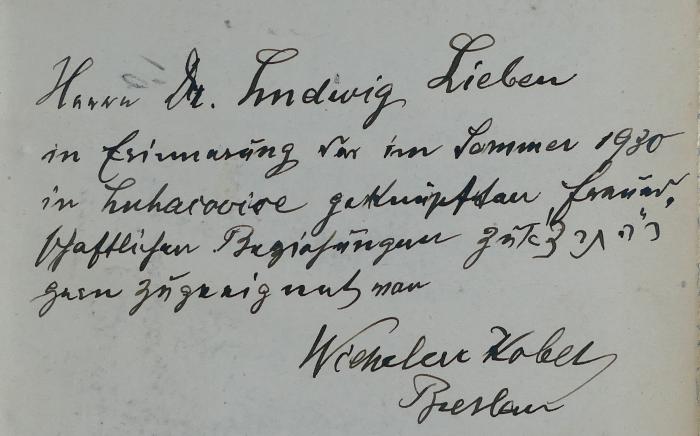 Herrn Dr. Ludwig Lieben
in Erinnerung der im Sommer 1930
in Luhacovice geknüpften freund-
schaftlichen Beziehungen zu ר"ה תרצ"א
gern zugeeignet von
Wilhelm
Breslau